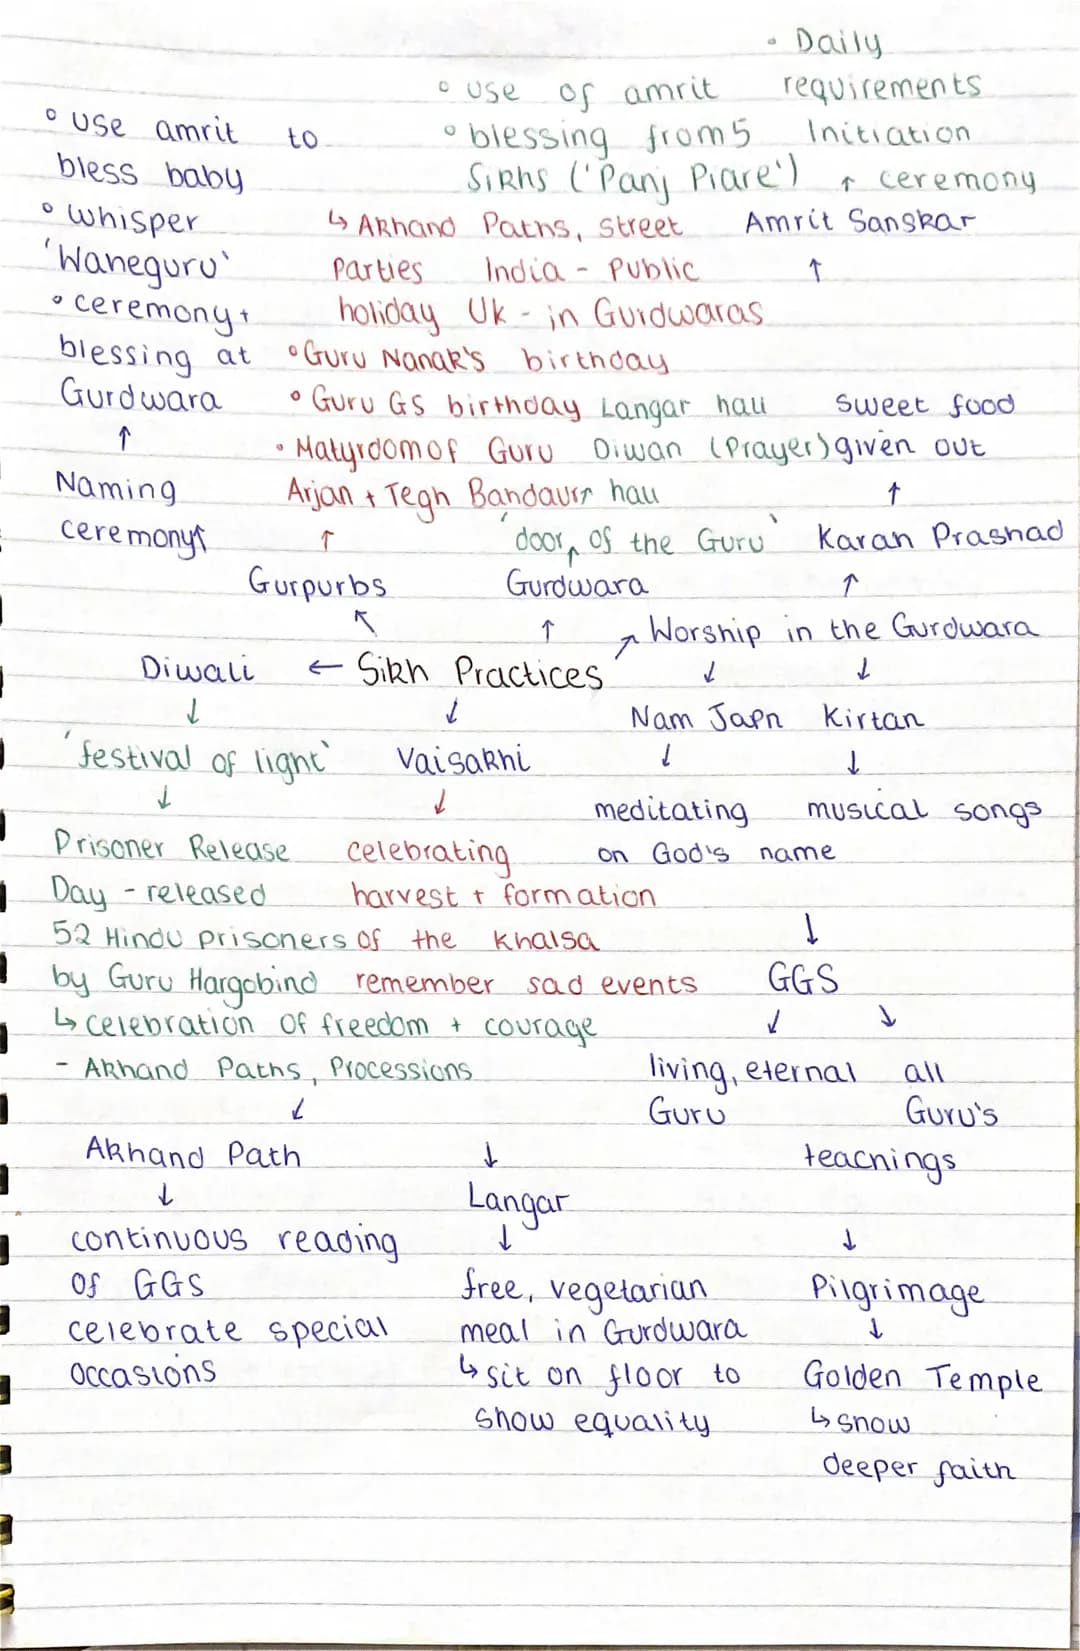 • Daily
requirements
Initiation
ceremony
Amrit Sanskar
• use of amrit
• blessing from 5
Sikhs ('Panj Piare')
• use amrit to
bless baby
• whisper
'Waheguru'
• ceremony +
blessing at
Gurdwara
↑
Naming
ceremony
↳ Akhand Paths, street
parties India - Public
holiday Uk - in Gurdwaras
• Guru Nanak's birthday
• Guru GS birthday
• Matyrdom of Guru
Arjan + Tegh Bandaurr
↑
Gurpurbs
Langar hall
Diwan (Prayer)
hall
'door of the Guru'
Gurdwara
↑
sweet food
given out
↑
Karah Prashad
↑
↗ Worship in the Gurdwara
Diwali ← Sikh Practices
↓
'festival of light'
↓
Prisoner Release
Day - released
52 Hindu prisoners
by Guru Hargobind
↳ celebration of freedom + courage
- Akhand Paths, Processions
Vaisakhi
↓
celebrating
harvest + formation
of the Khalsa
remember sad events
Nam Japn
↓
meditating
on God's name
Kirtan
↓
musical songs
↓
GGS
living, eternal
Guru
all
Guru's
teachings
Akhand Path
↓
continuous reading
of GGS
celebrate special
occasions
↓
Langar
↓
free, vegetarian
meal in Gurdwara
↳ sit on floor to
show equality
↓
Pilgrimage
↓
Golden Temple
↳ show
deeper faith